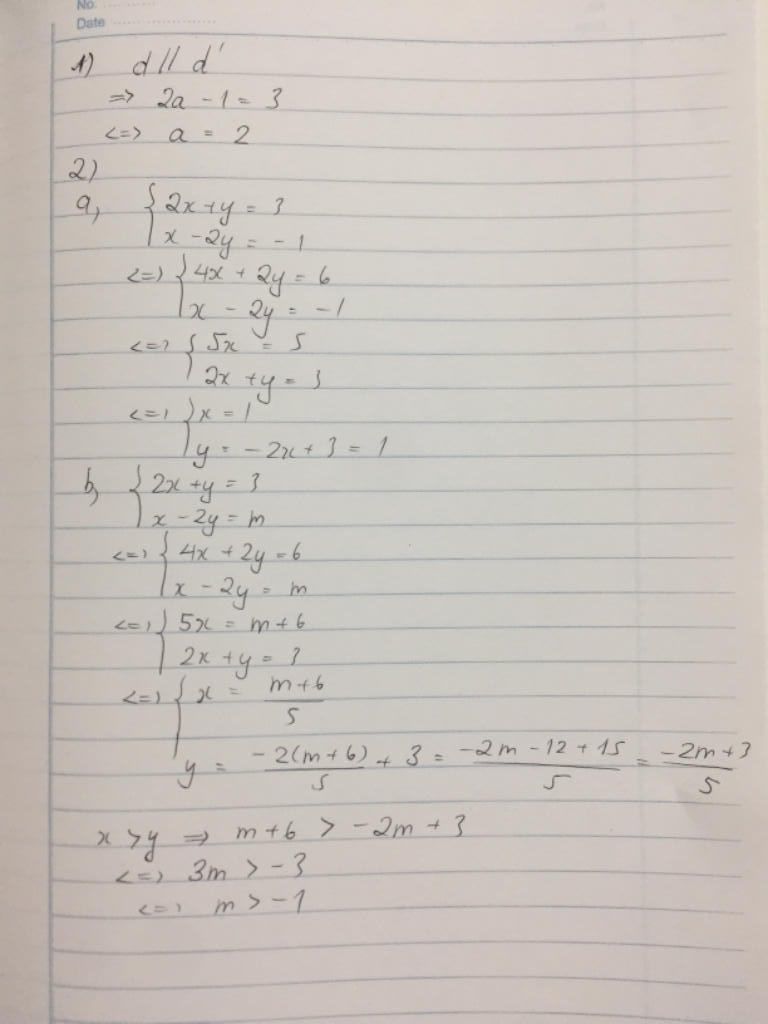 No. ............
Date ..................
1) d // d'
=> 2a - 1 = 3
<=> a = 2
2)
a, { 2x + y = 3
x - 2y = -1
<=> { 4x + 2y = 6
x - 2y = -1
<=> { 5x = 5
2x + y = 3
<=> { x = 1
y = -2x + 3 = 1
b, { 2x + y = 3
x - 2y = m
<=> { 4x + 2y = 6
x - 2y = m
<=> { 5x = m + 6
2x + y = 3
<=> { x = (m+6)/5
y = -2(m+6)/5 + 3 = (-2m - 12 + 15)/5 = (-2m + 3)/5
x > y => m + 6 > -2m + 3
<=> 3m > -3
<=> m > -1